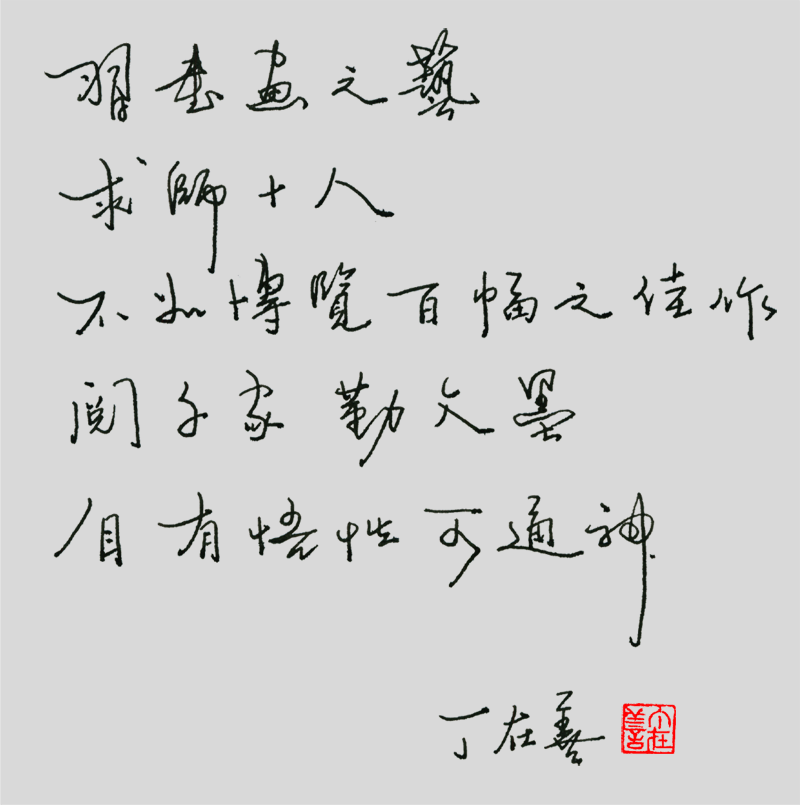 習書畫之藝
求師十人
不如博覽百幅之佳作
閱千家勤文墨
自有悟性可通神
丁在善